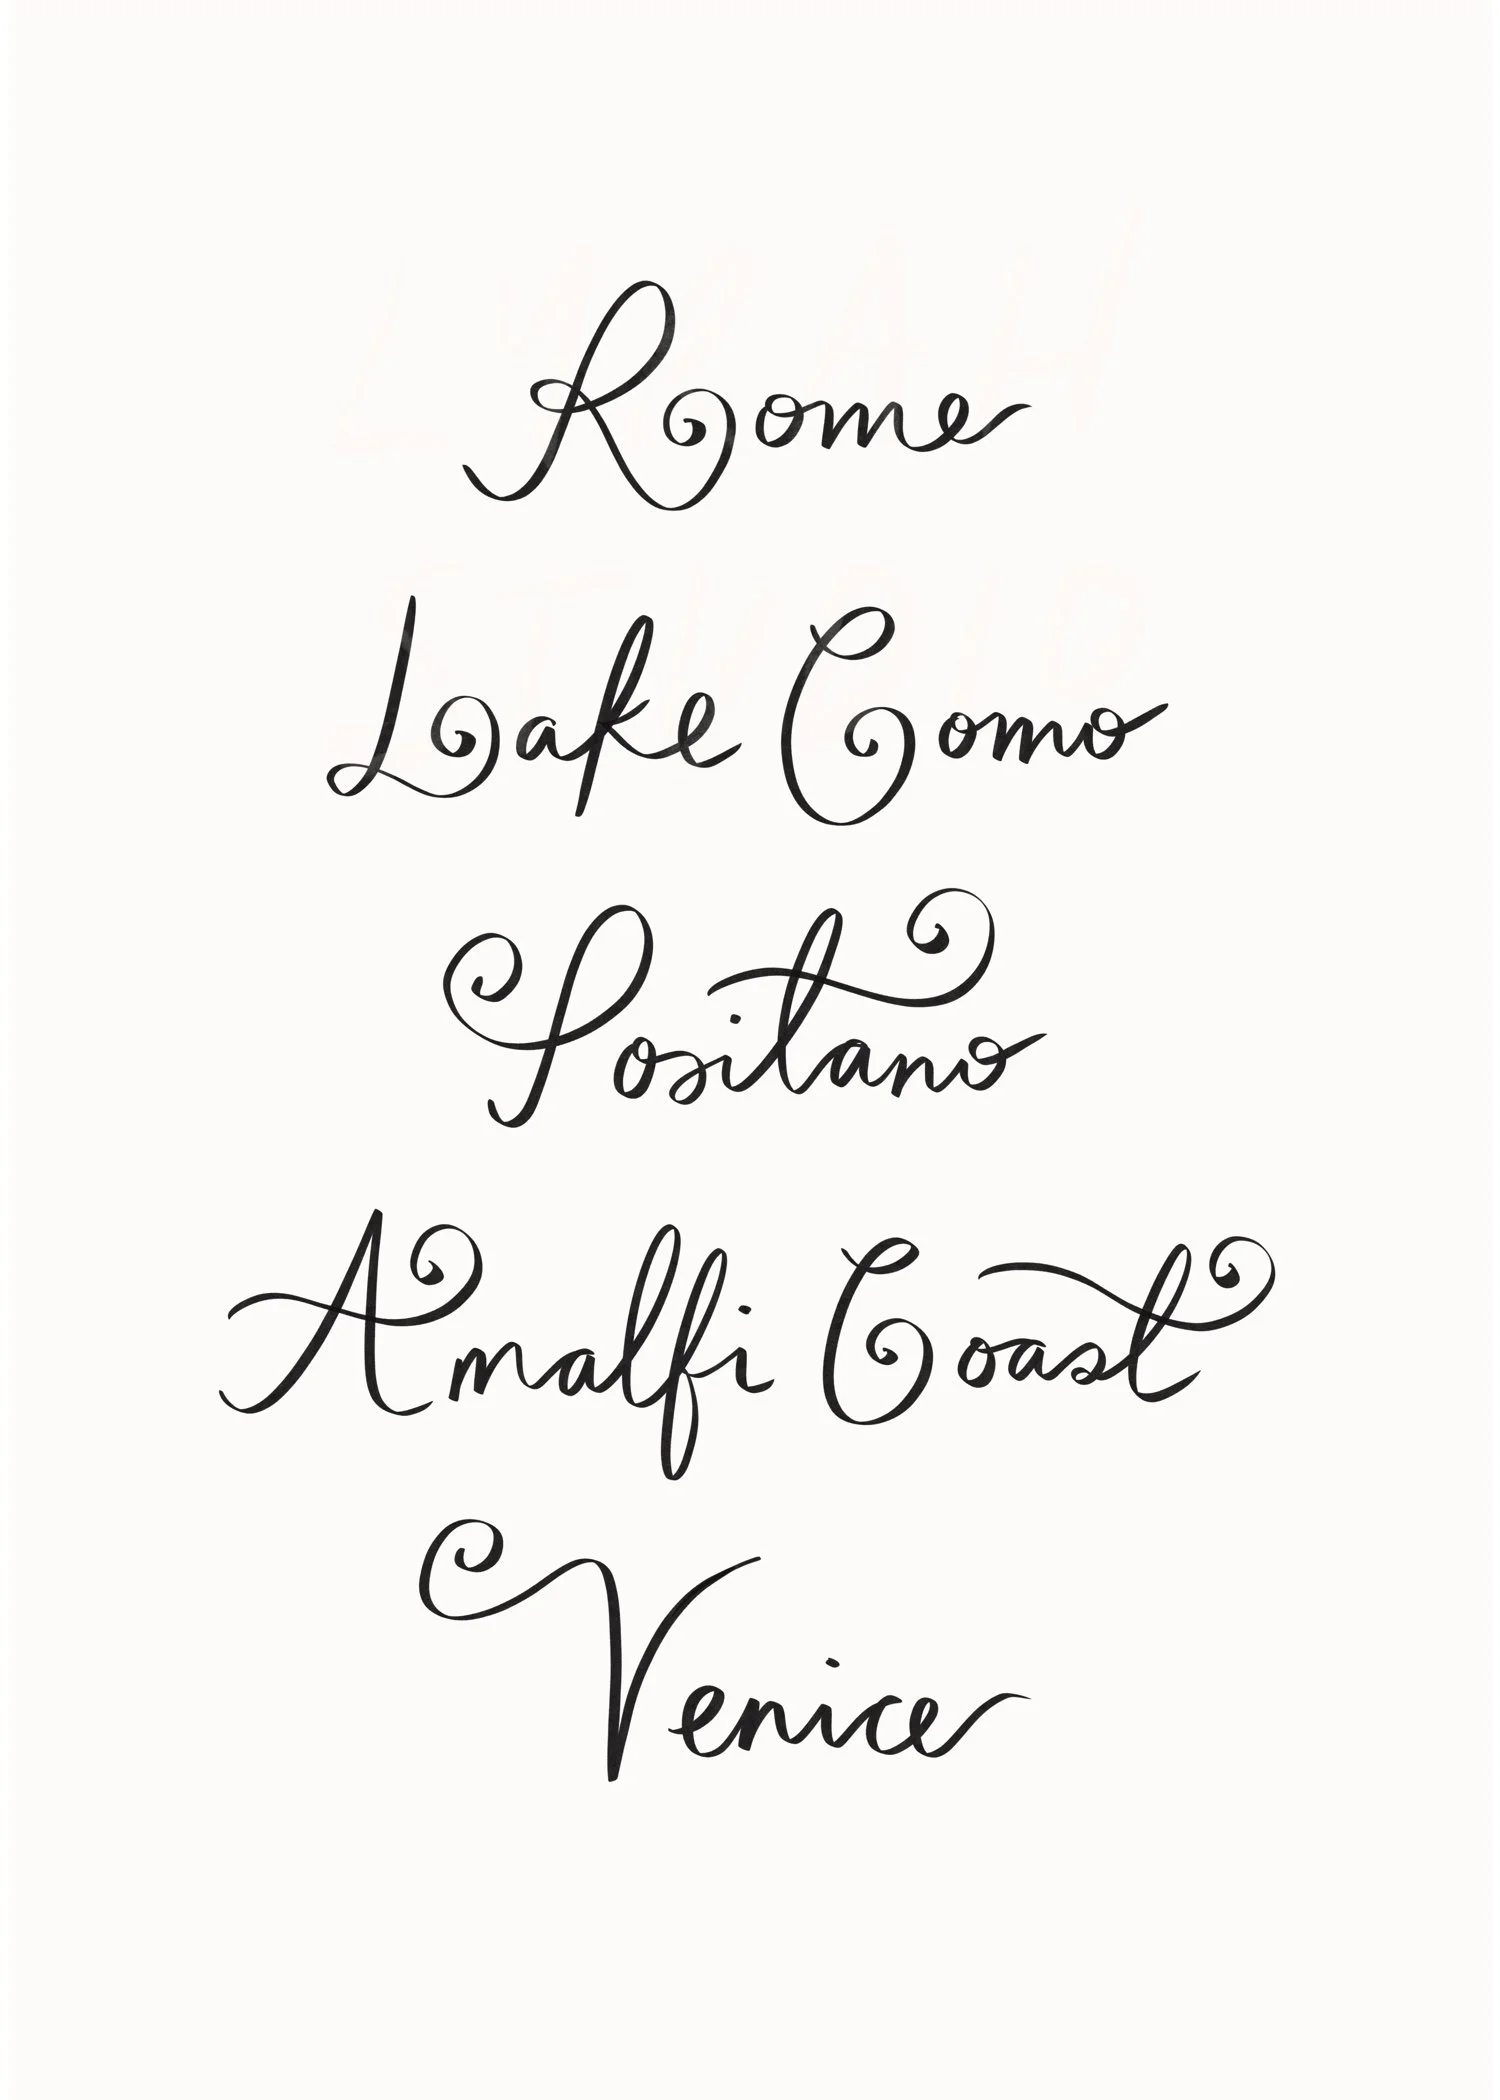 Rome
Lake Como
Positano
Amalfi Coast
Venice